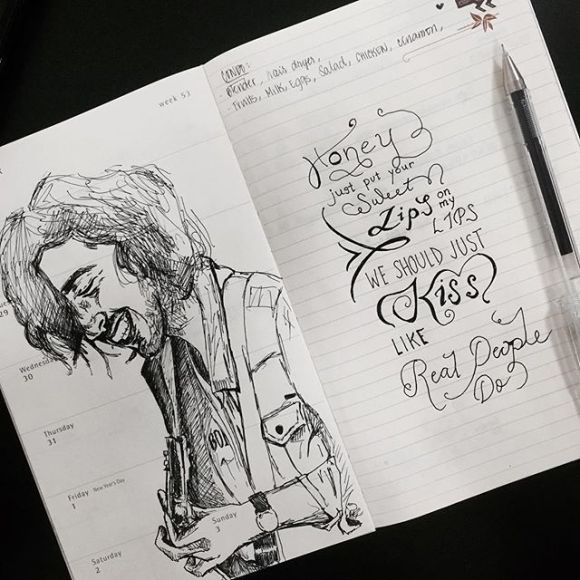 week 53
29
Wednesday
30
Thursday
31
Friday New Year's Day
1
Saturday
2
Sunday
3
CONDO:
- Blender, Hair dryer,
- Fruits, Milk, Eggs, Salad, CHICKEN, cinnamon,
Honey
just put your
Sweet
Lips on
my
LIPS
WE SHOULD JUST
Kiss
LIKE
Real People
Do